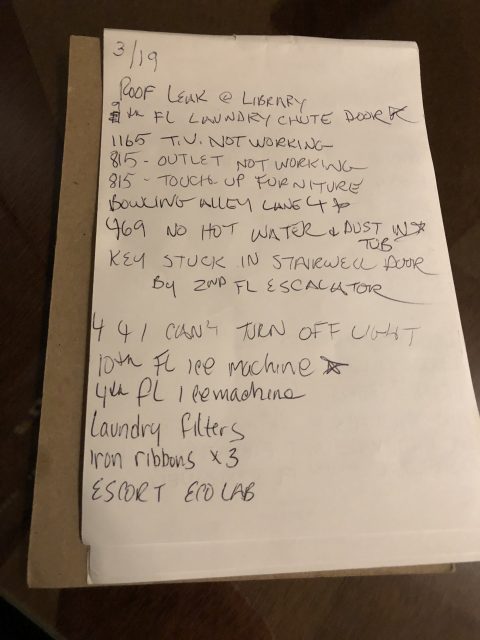 3/19
ROOF LEAK @ LIBRARY
9th FL LAUNDRY CHUTE DOOR
1165 T.V. NOT WORKING
815 - OUTLET NOT WORKING
815 - TOUCH-UP FURNITURE
BOWLING ALLEY LANE 4
469 NO HOT WATER & DUST IN
TUB
KEY STUCK IN STAIRWELL DOOR
BY 2ND FL ESCALATOR
441 CAN'T TURN OFF LIGHT
10th FL ice machine
4th FL icemachine
Laundry filters
iron ribbons x3
ESCORT ECOLAB